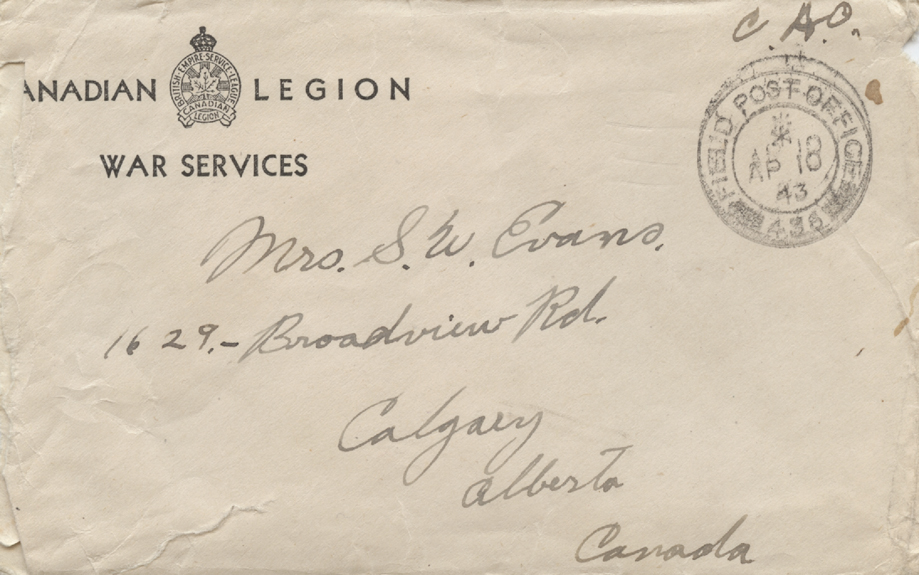 C.A.O.
ANADIAN LEGION
BRITISH·EMPIRE·SERVICE·LEAGUE
CANADIAN
LEGION
WAR SERVICES
FIELD POST OFFICE
AP 18
43
Mrs. S. W. Evans.
1629.- Broadview Rd.
Calgary
Alberta
Canada